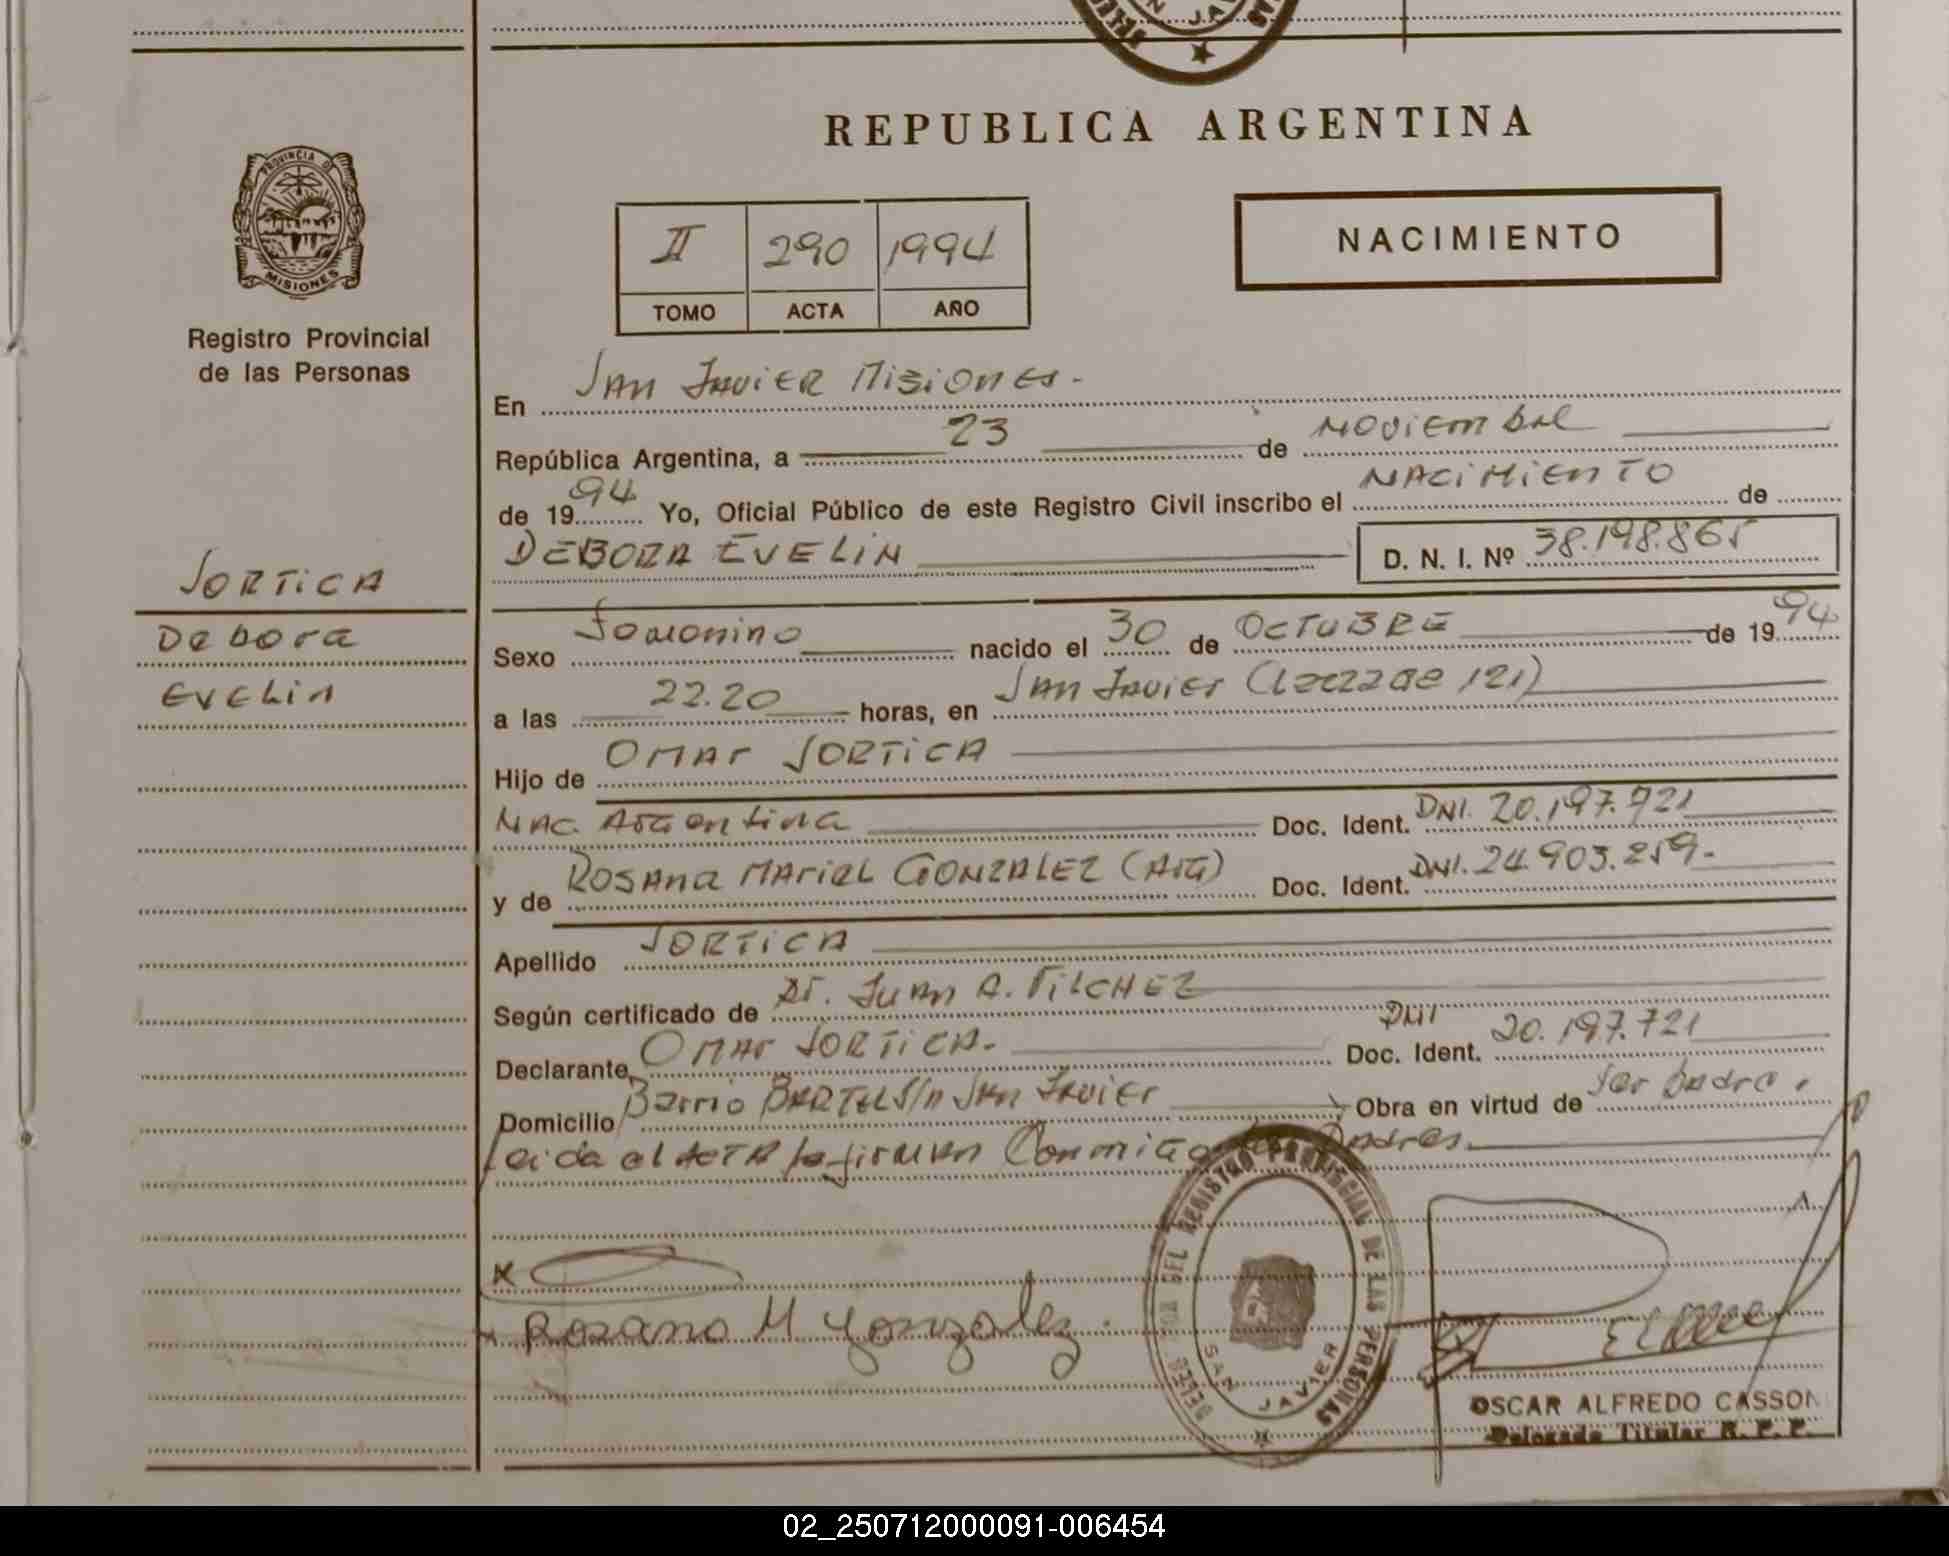 SAN JAV
REPUBLICA ARGENTINA
PROVINCIA DE
MISIONES
Registro Provincial
de las Personas
II 290 1994
TOMO ACTA AÑO
NACIMIENTO
En San Javier Misiones.-
República Argentina, a 23 de Noviembre
de 1994 Yo, Oficial Público de este Registro Civil inscribo el NACIMIENTO de
DEBORA EVELIN D. N. I. Nº 38.198.865
SORTICA
Debora
Evelin
Sexo Femenino nacido el 30 de OCTUBRE de 1994
a las 22.20 horas, en San Javier (121)
Hijo de OMAR SORTICA
Nac. Argentina Doc. Ident. DNI. 20.197.721
y de Rosana Mariel GONZALEZ (Arg) Doc. Ident. DNI. 24.903.259.-
Apellido SORTICA
Según certificado de Dr. Juan A. VILCHEZ
Declarante Omar SORTICA.- Doc. Ident. DNI 20.197.721
Domicilio Barrio BARTEL S/n San Javier Obra en virtud de ser padre.
Leida el ACTA la firman Conmigo los Padres.
x
x Rosana M Gonzalez.
DEL REGISTRO PROVINCIAL DE LAS PERSONAS
SAN JAVIER
OSCAR ALFREDO CASSON
Delegado Titular R. P. P.
02_250712000091-006454